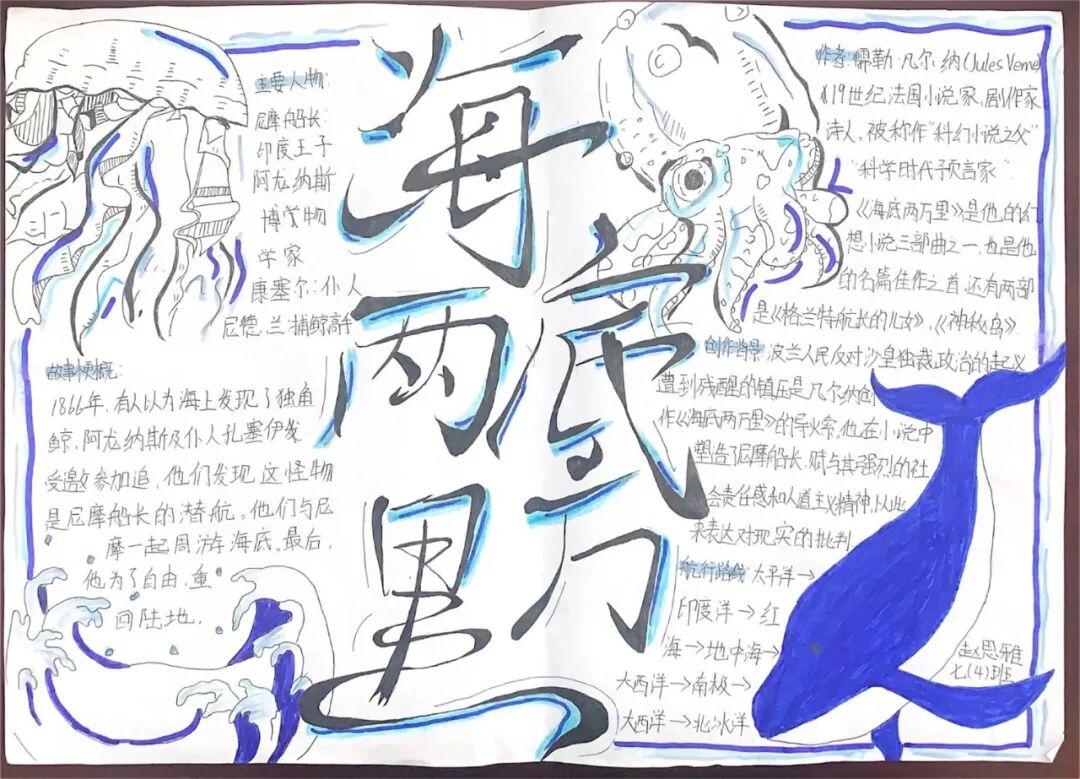 海底两万里
主要人物:
尼摩船长:
印度王子
阿龙纳斯
博学物
学家
康塞尔:仆人
尼德·兰:捕鲸高手
故事梗概:
1866年,有人以为海上发现了独角
鲸,阿龙纳斯及仆人孔塞伊发
受邀参加追,他们发现这怪物
是尼摩船长的潜航。他们与尼
摩一起周游海底。最后,
他为了自由,重
回陆地,
作者:儒勒·凡尔·纳(Jules Verne)
19世纪法国小说家,剧作家
诗人,被称作“科幻小说之父”
“科学时代预言家”
《海底两万里》是他的幻
想小说三部曲之一,也是他
的名篇佳作之首,还有两部
是《格兰特船长的儿女》,《神秘岛》
创作背景:波兰人民反对沙皇独裁政治的起义
遭到残酷的镇压是凡尔纳创
作《海底两万里》的导火索,他在小说中
塑造了尼摩船长,赋与其强烈的社
会责任感和人道主义精神,以此
来表达对现实的批判
航行路线:太平洋→
印度洋→红
海→地中海→
大西洋→南极→
大西洋→北冰洋
赵思雅
七(4)班